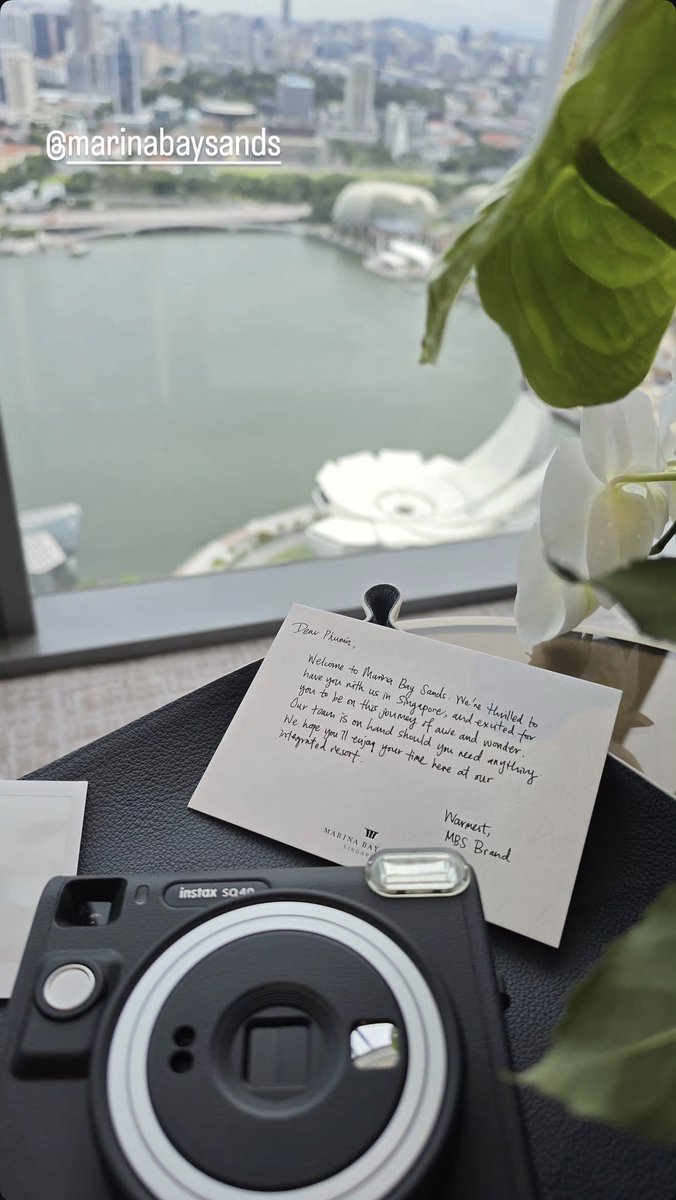 @marinabaysands
Dear Phuwin,
Welcome to Marina Bay Sands. We're thrilled to
have you with us in Singapore, and excited for
you to be on this journey of awe and wonder.
Our team is on hand should you need anything.
We hope you'll enjoy your time here at our
integrated resort.
Warmest,
MBS Brand
MARINA BAY
SINGAP
instax SQ40